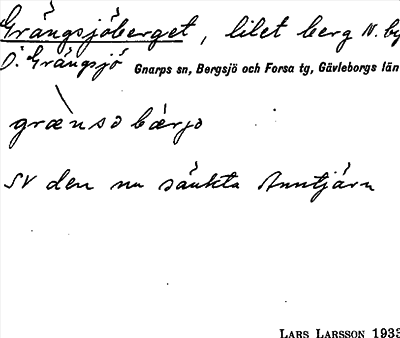 Grängsjöberget, litet berg N. by
Ö. Grängsjö Gnarps sn, Bergsjö och Forsa tg, Gävleborgs län
grænsɔ bærjɔ
SV den nu sänkta Anntjärn
LARS LARSSON 1933